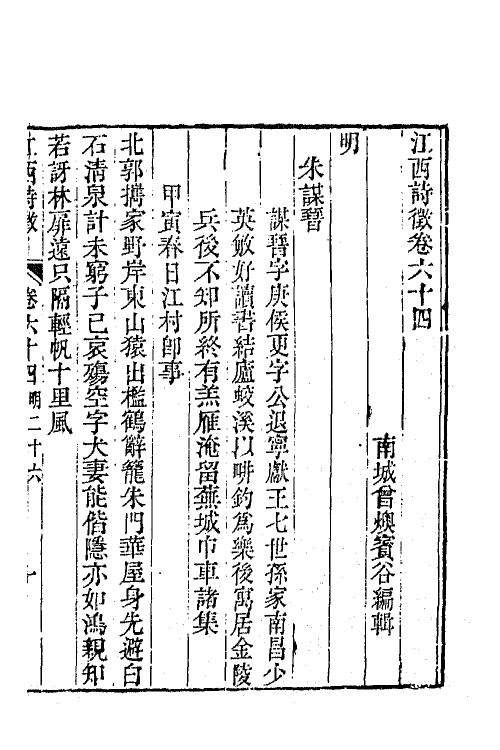 江西詩徵卷六十四
南城曾燠賓谷編輯
明
朱謀㙔
謀㙔字庚候更字公退寧獻王七世孫家南昌少
英敏好讀書結廬蛟溪以畊釣為樂後寓居金陵
兵後不知所終有羔雁淹留蕪城巾車諸集
甲寅春日江村卽事
北郭擕家野岸東山猿出檻鶴辭籠朱門華屋身先避白
石清泉計未窮子已哀殤空字犬妻能偕隱亦如鴻親知
若訝林扉遠只隔輕帆十里風
江西詩徵 卷六十四 明二十六 一